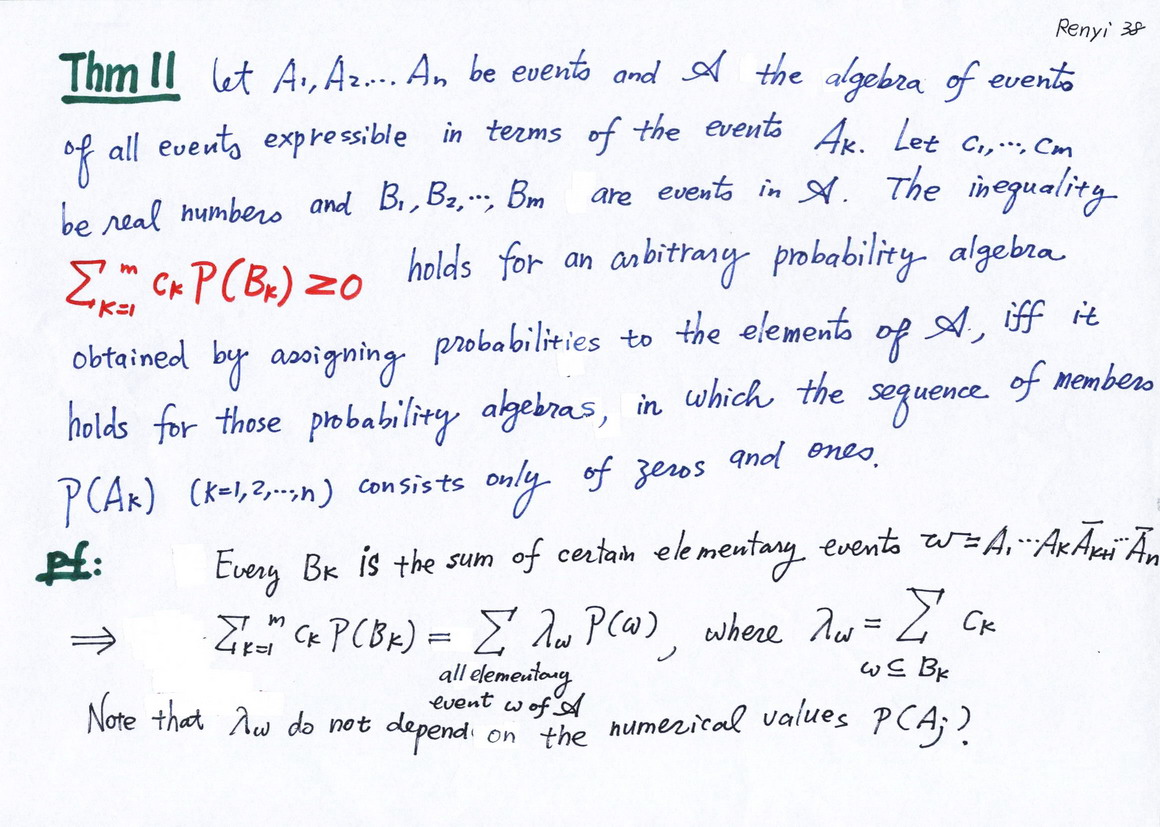 Renyi 38
Thm 11 Let A₁, A₂... Aₙ be events and 𝒜 the algebra of events
of all events expressible in terms of the events Aₖ. Let c₁,..., cₘ
be real numbers and B₁, B₂,..., Bₘ are events in 𝒜. The inequality
∑ₖ₌₁ᵐ cₖ P(Bₖ) ≥ 0 holds for an arbitrary probability algebra
obtained by assigning probabilities to the elements of 𝒜, iff it
holds for those probability algebras, in which the sequence of members
P(Aₖ) (k=1,2,...,n) consists only of zeros and ones.
pf: Every Bₖ is the sum of certain elementary events ω = A₁...AₖA̅ₖ₊₁...A̅ₙ
⟹ ∑ₖ₌₁ᵐ cₖ P(Bₖ) = ∑ λω P(ω), where λω = ∑ cₖ
all elementary ω ⊆ Bₖ
event ω of 𝒜
Note that λω do not depend on the numerical values P(Aⱼ)?